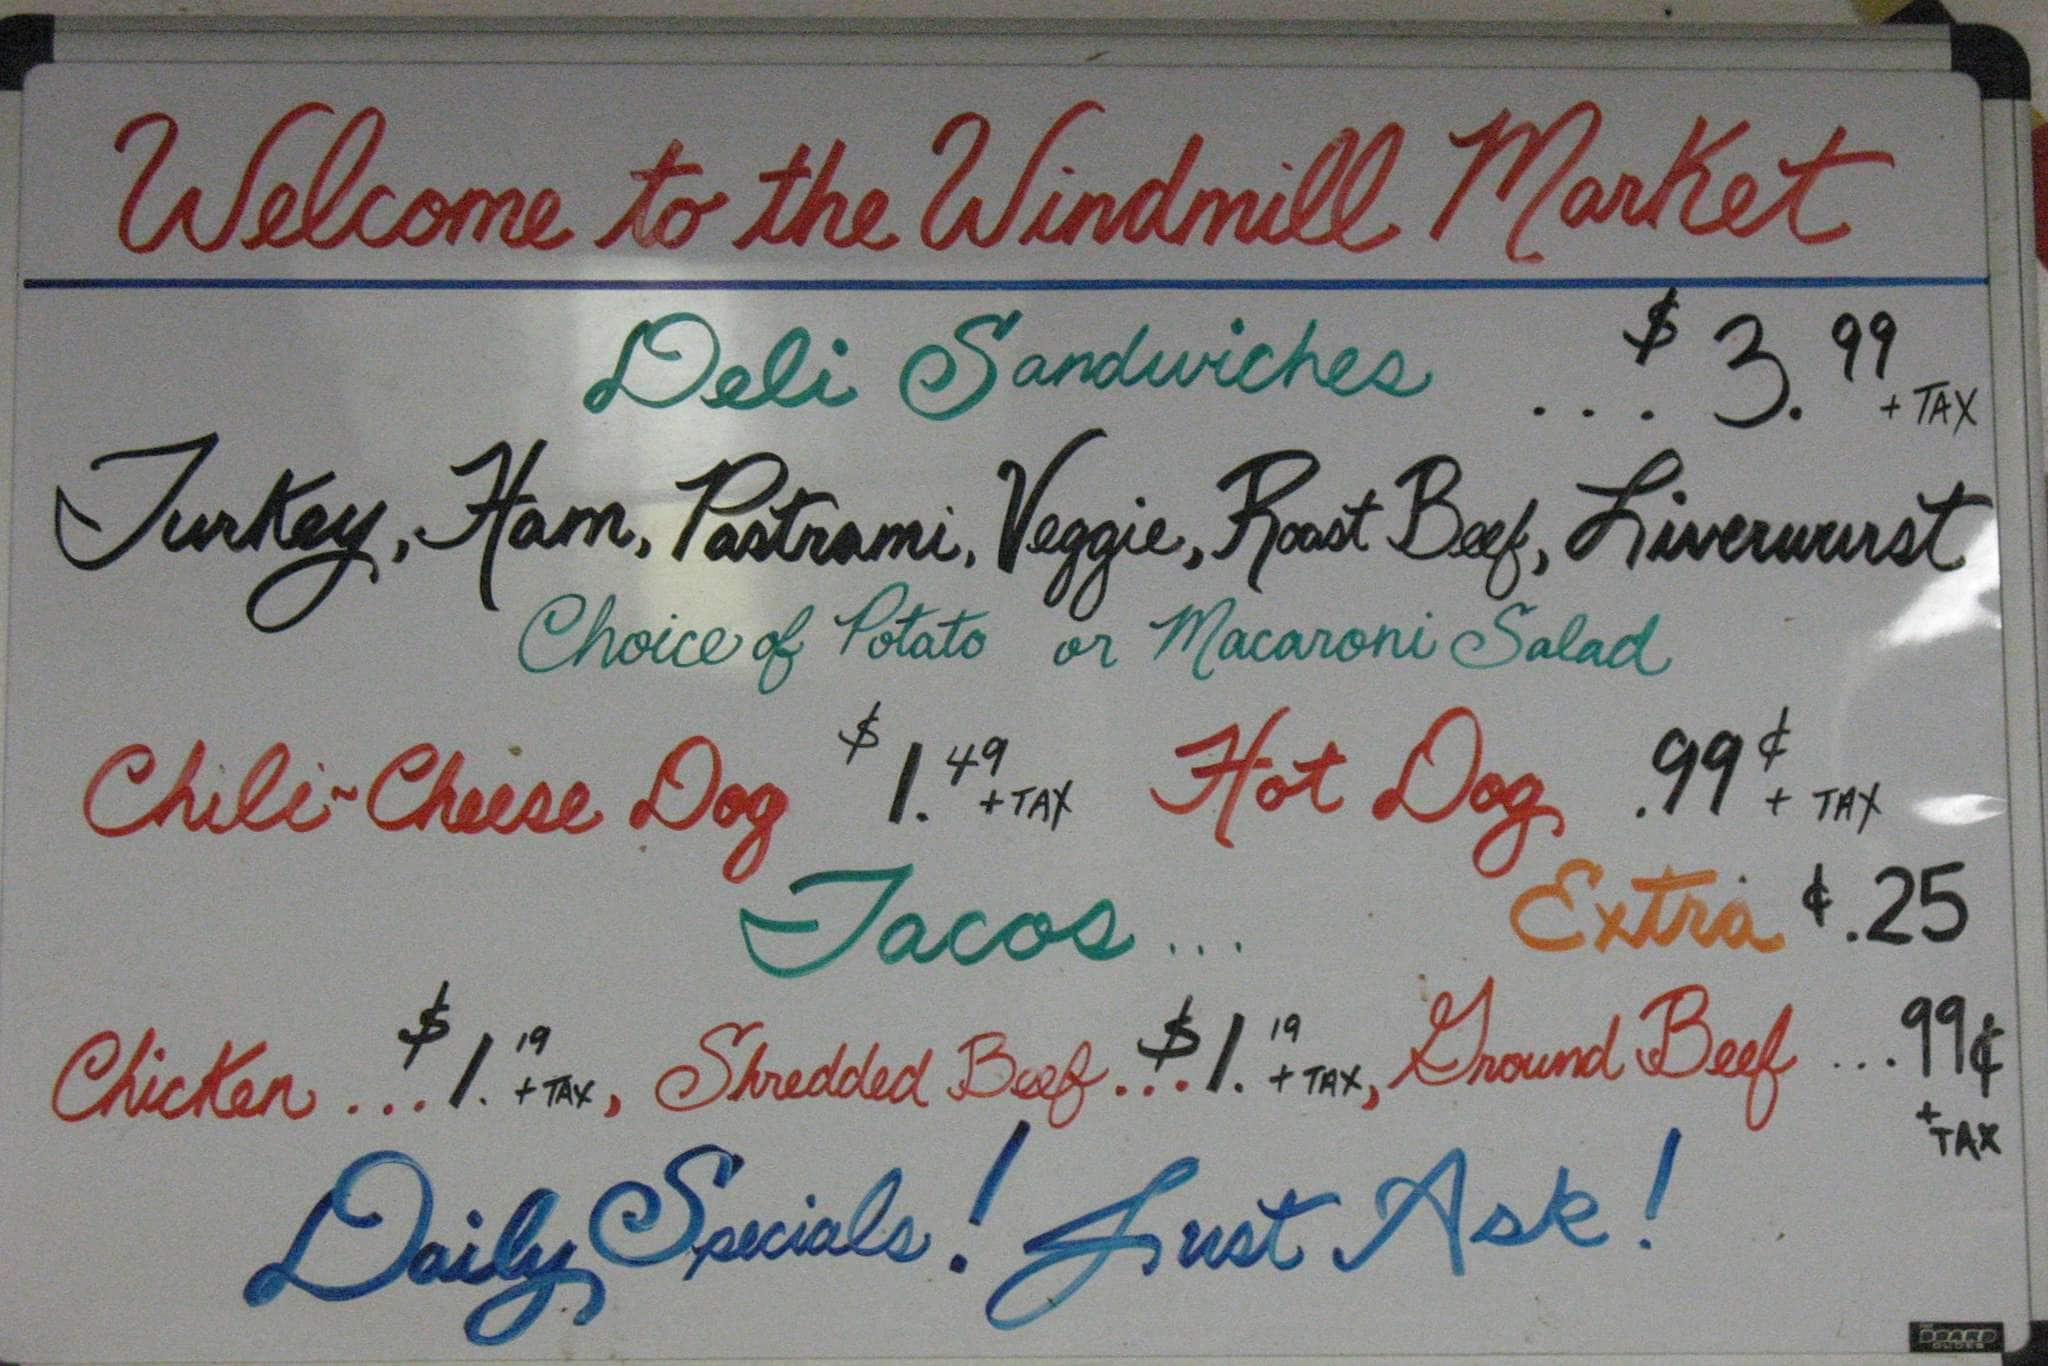 Welcome to the Windmill Market
Deli Sandwiches ... $3.99 + TAX
Turkey, Ham, Pastrami, Veggie, Roast Beef, Liverwurst
Choice of Potato or Macaroni Salad
Chili~Cheese Dog $1.49 + TAX Hot Dog .99¢ + TAX
Tacos... Extra ¢.25
Chicken ...$1.19 + TAX, Shredded Beef...$1.19 + TAX, Ground Beef ...99¢ + TAX
Daily Specials! Just Ask!
BOARD